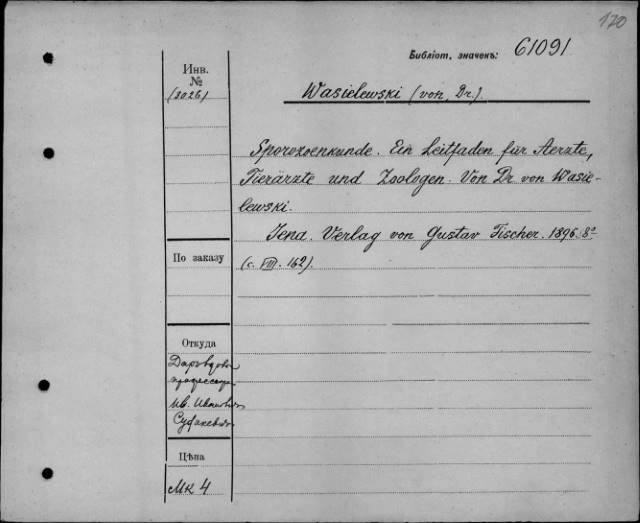 120
Библіот. значекъ: 61091
Инв.
№
(3026)
Wasielewski (von, Dr.).
Sporozoenkunde. Ein Leitfaden für Aerzte,
Tierärzte und Zoologen. Von Dr von Wasie-
lewski.
Jena. Verlag von Gustav Fischer. 1896. 8º
(c. VIII. 162).
По заказу
Откуда
профессора
Ив. Иванов.
Цѣна
Мк 4